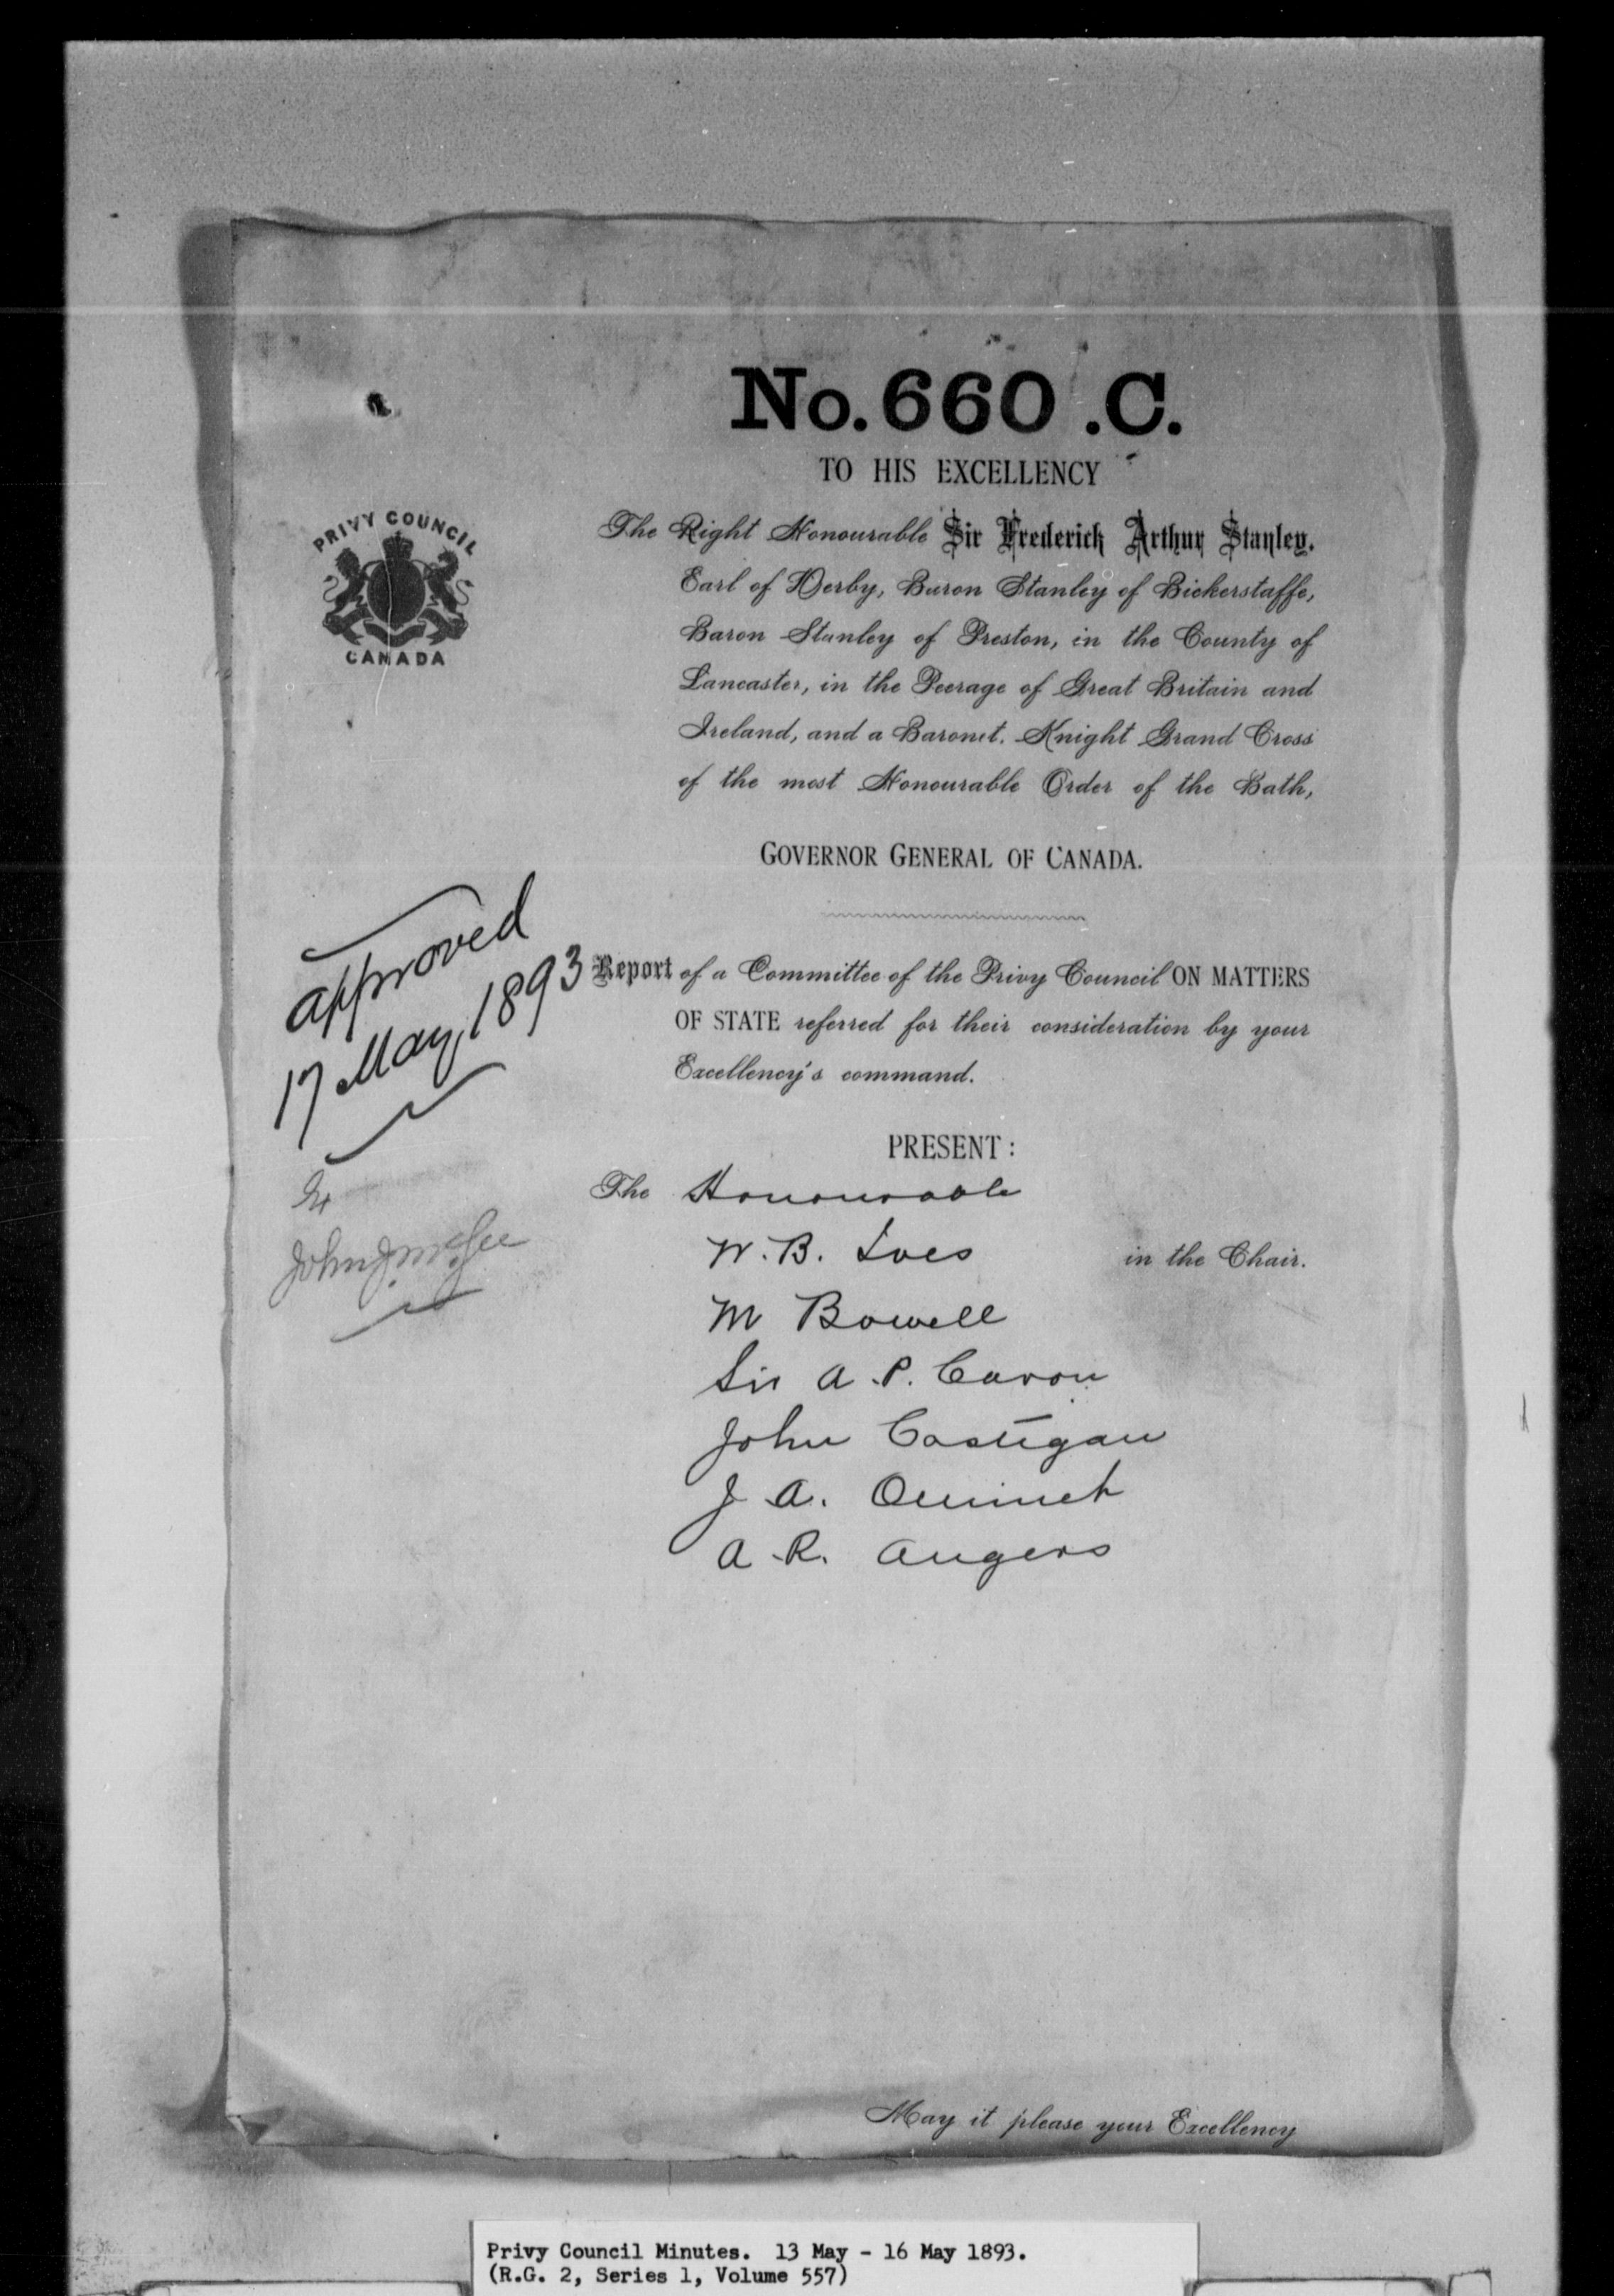 No. 660 .C.
TO HIS EXCELLENCY
PRIVY COUNCIL
CANADA
The Right Honourable Sir Frederick Arthur Stanley.
Earl of Derby, Baron Stanley of Bickerstaffe,
Baron Stanley of Preston, in the County of
Lancaster, in the Peerage of Great Britain and
Ireland, and a Baronet. Knight Grand Cross
of the most Honourable Order of the Bath,
GOVERNOR GENERAL OF CANADA.
approved
17 May, 1893
John J. McGee
Report of a Committee of the Privy Council ON MATTERS
OF STATE referred for their consideration by your
Excellency's command.
PRESENT:
The Honourable
W. B. Ives in the Chair.
M Bowell
Sir A. P. Caron
John Costigan
J. A. Ouimet
A. R. Angers
May it please your Excellency
Privy Council Minutes. 13 May - 16 May 1893.
(R.G. 2, Series 1, Volume 557)